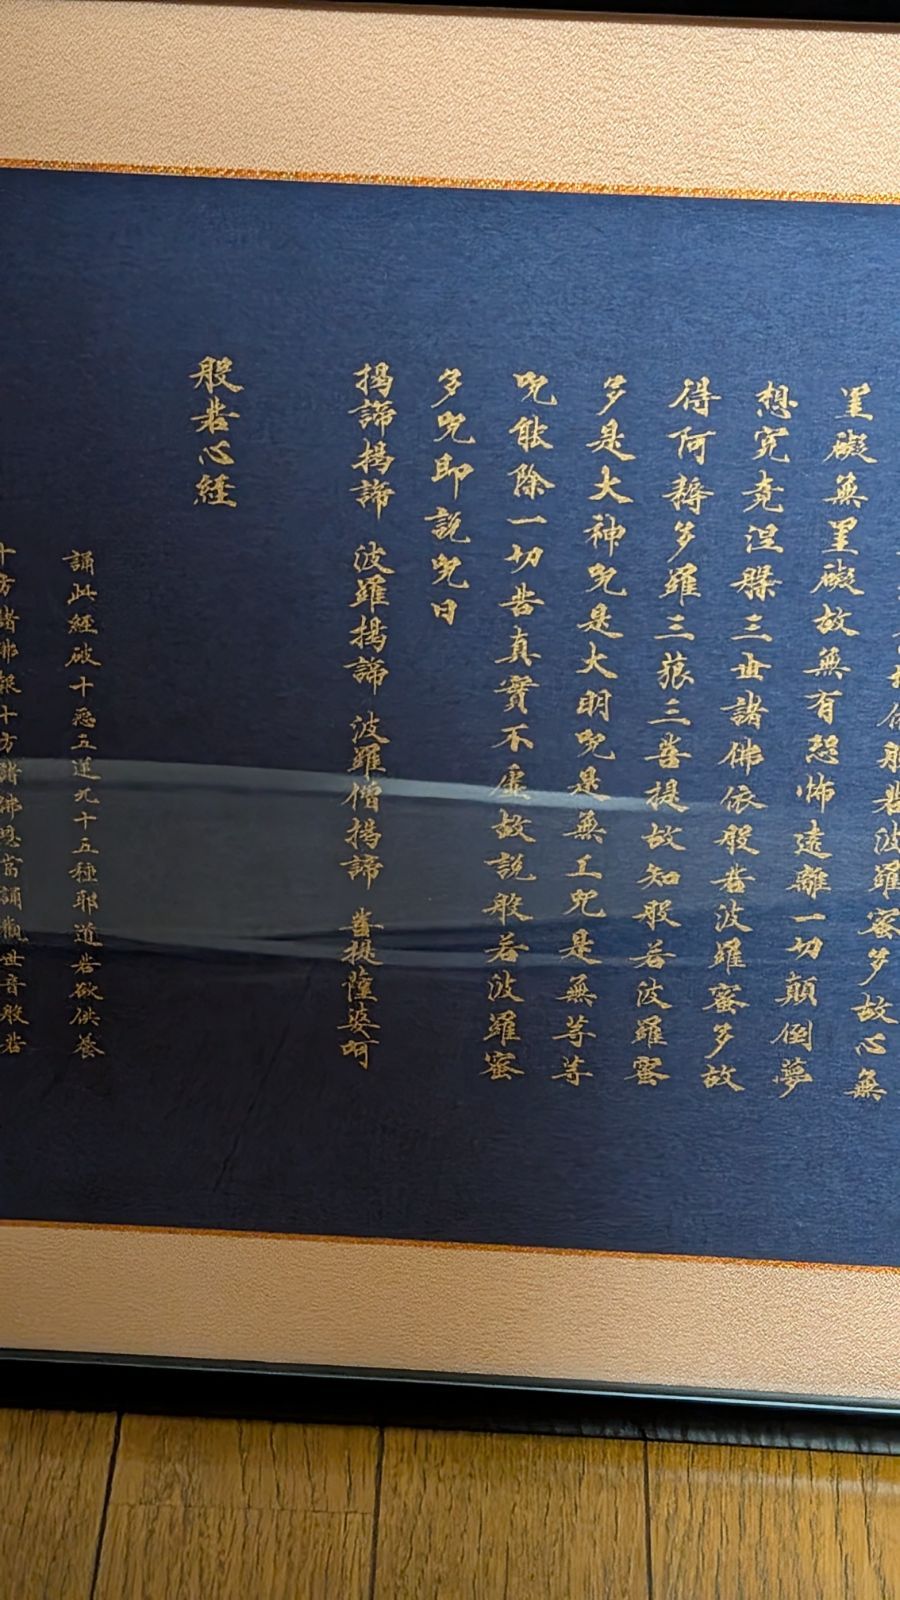 依般若波羅蜜多故心無
罣礙無罣礙故無有恐怖遠離一切顛倒夢
想究竟涅槃三世諸佛依般若波羅蜜多故
得阿耨多羅三藐三菩提故知般若波羅蜜
多是大神咒是大明咒是無上咒是無等等
咒能除一切苦真實不虛故說般若波羅蜜
多咒即說咒曰
揭諦揭諦 波羅揭諦 波羅僧揭諦 菩提薩婆呵
般若心経
誦此経破十惡五逆九十五種耶道若欲供養
十方諸佛報十方諸佛恩當誦觀世音般若